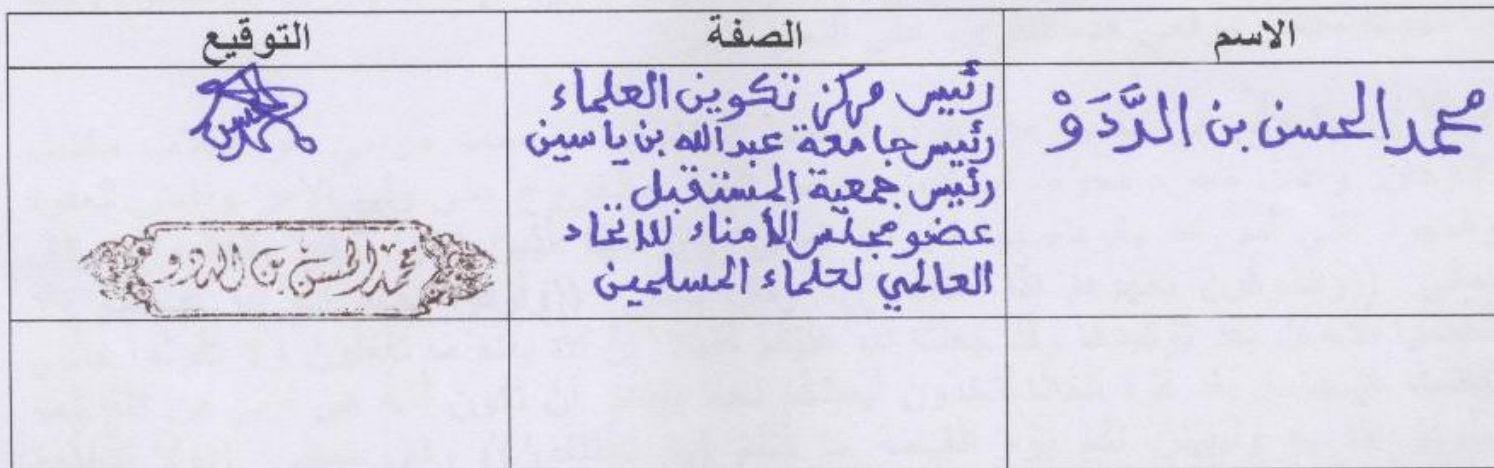 الاسم الصفة التوقيع
محمد الحسن بن الدَّدَوْ
رئيس مركز تكوين العلماء
رئيس جامعة عبد الله بن ياسين
رئيس جمعية المستقبل
عضو مجلس الأمناء للاتحاد
العالمي لعلماء المسلمين
محمد الحسن بن الددو